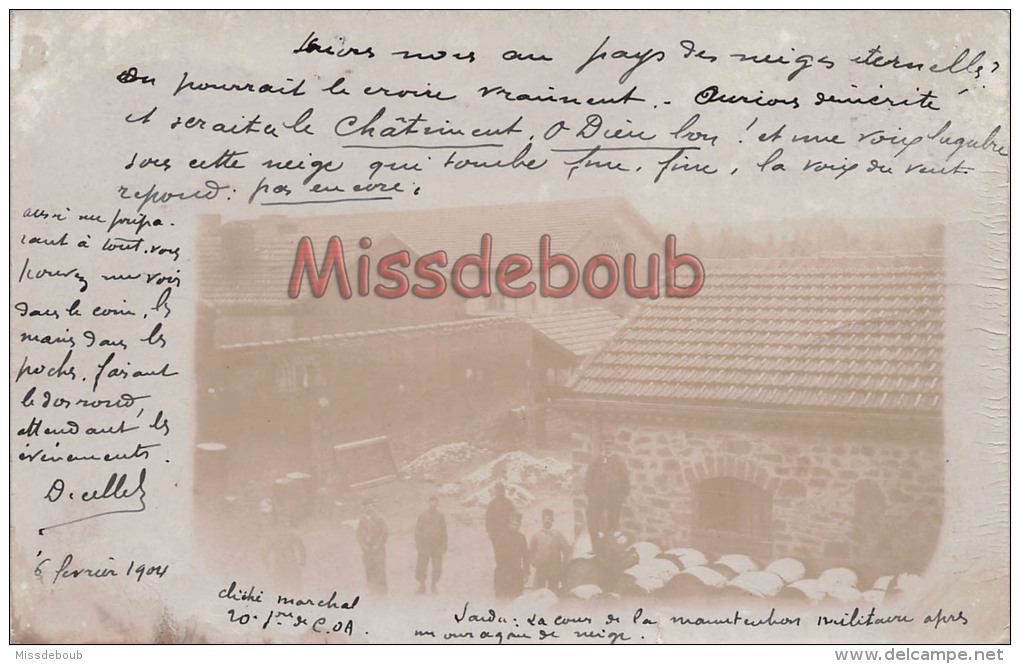 nous au pays des neiges éternelles?
On pourrait le croire vraiment. - Aurions démérité
et serait-ce le Châtiment, O Dieu bon! et une voix lugubre
sous cette neige qui tombe fine, fine, la voix du vent
répond: pas encore.
aussi me prépa-
rant à tout, vous
pouvez me voir
dans le coin, les
mains dans les
poches, faisant
le dos rond,
attendant les
événements.
6 février 1904
cliché marchal
20e de C.O.A.
La cour de la manutention militaire après
un ouragan de neige.
Missdeboub
Missdeboub
http://www.delcampe.net